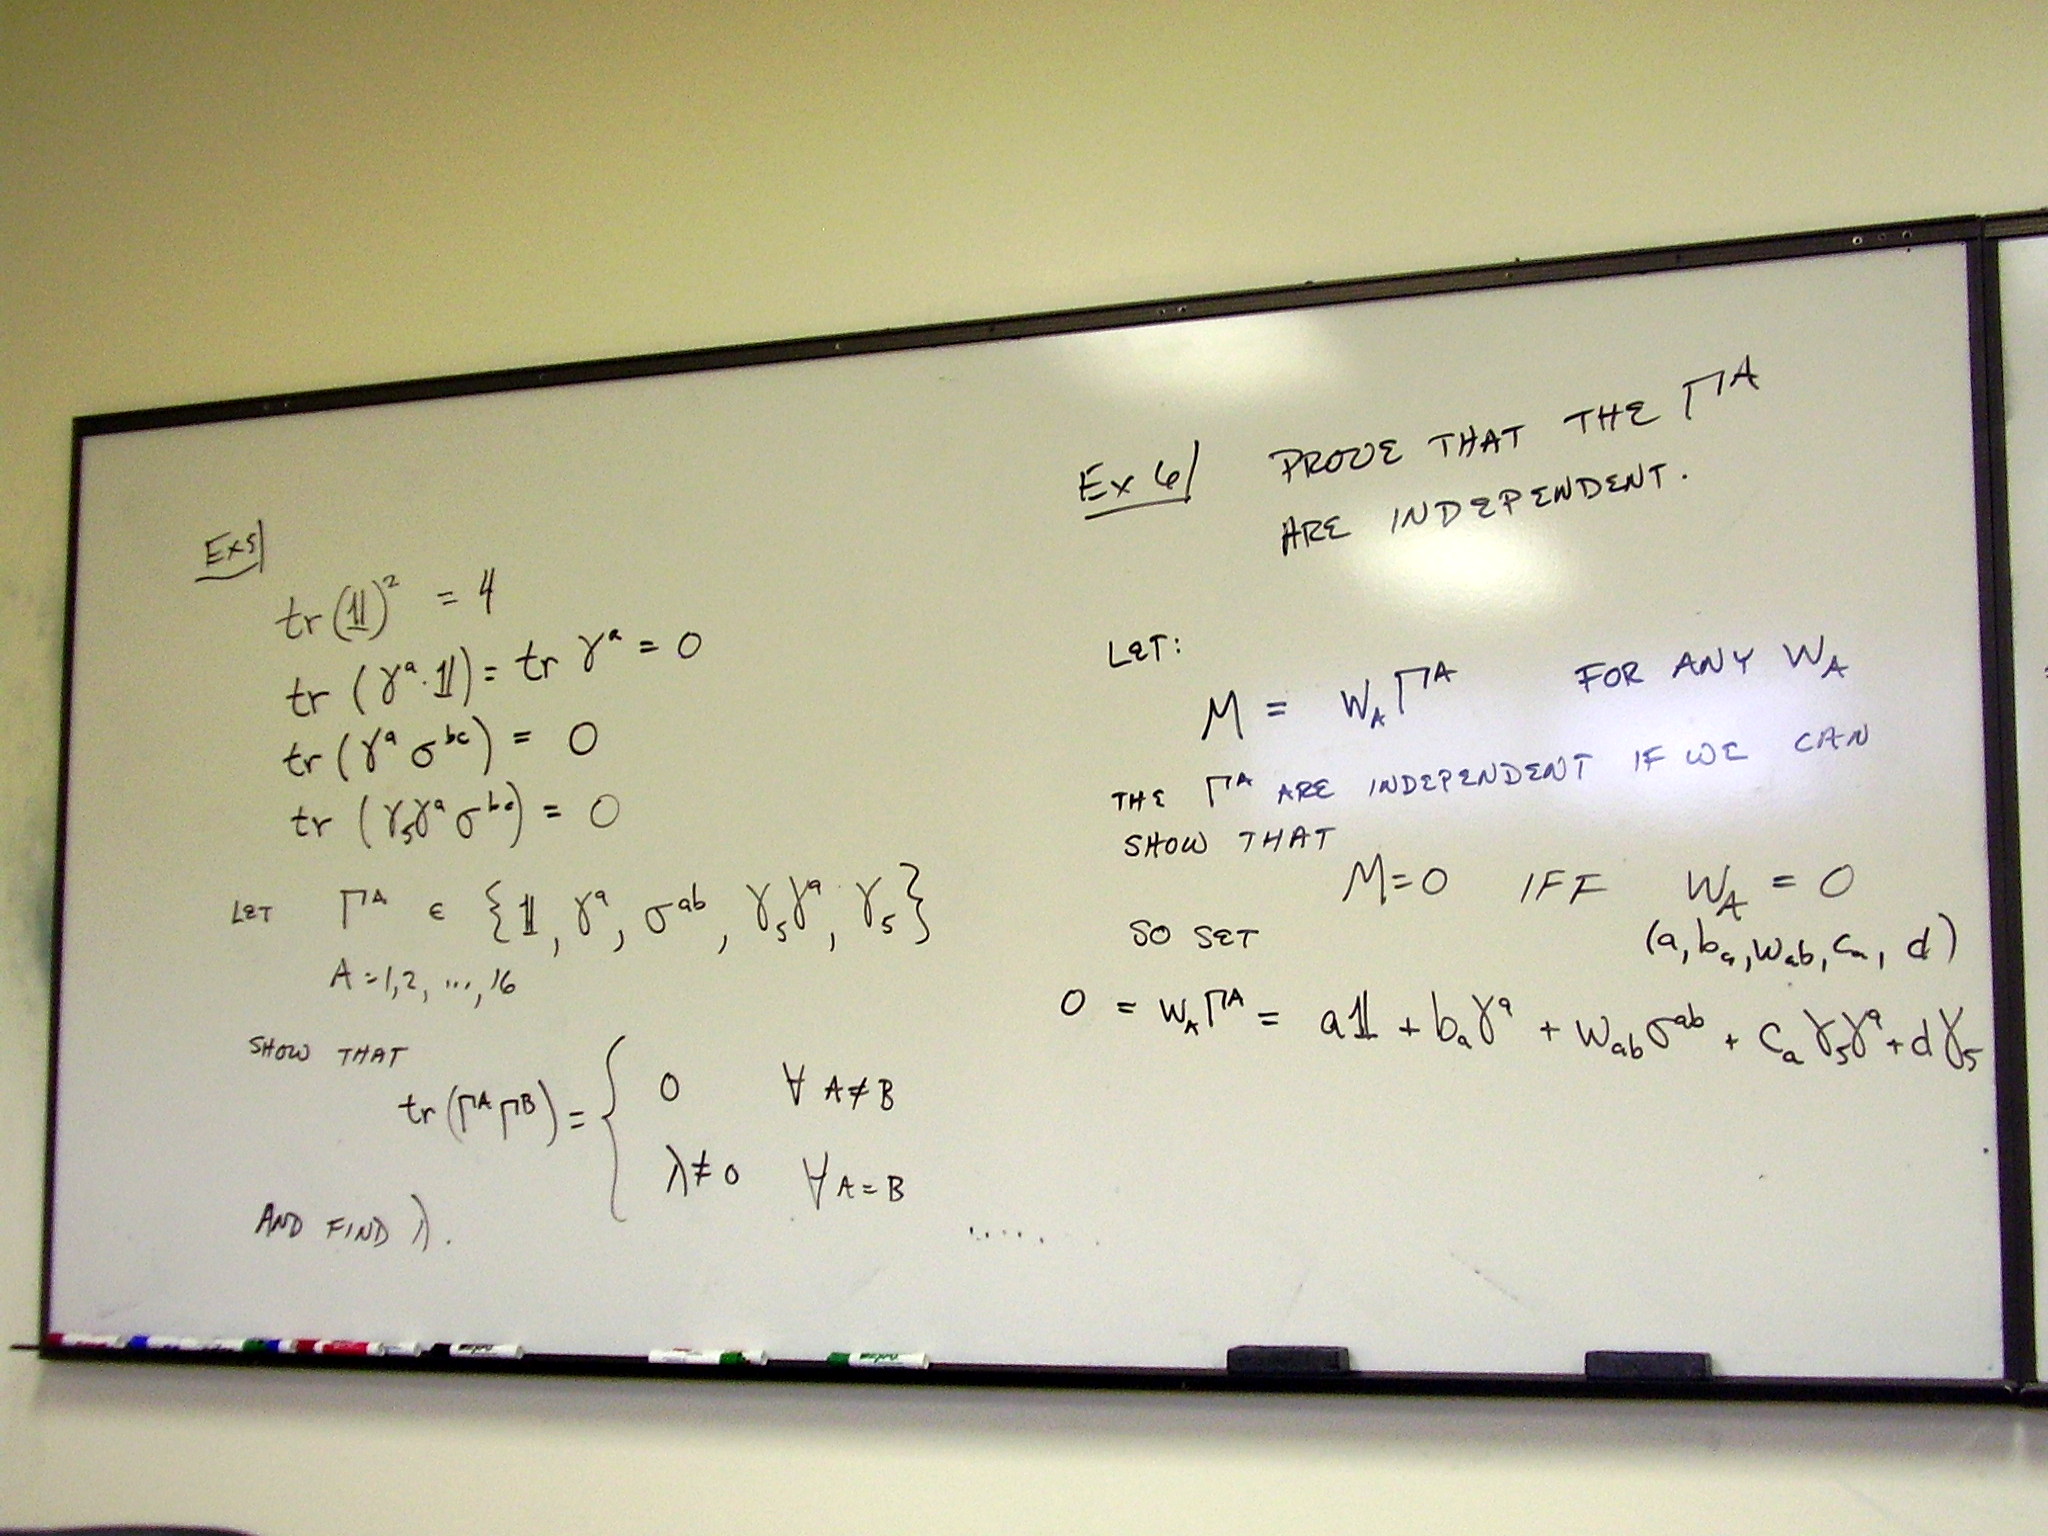 Ex 5
tr(𝟙)² = 4
tr (γᵃ·𝟙) = tr γᵃ = 0
tr (γᵃ σᵇᶜ) = 0
tr (γ₅γᵃ σᵇᶜ) = 0
LET Γᴬ ∈ {𝟙, γᵃ, σᵃᵇ, γ₅γᵃ, γ₅}
A = 1, 2, ..., 16
SHOW THAT
tr (Γᴬ Γᴮ) = { 0 ∀ A ≠ B
λ ≠ 0 ∀ A = B
AND FIND λ.
Ex 6 PROVE THAT THE Γᴬ
ARE INDEPENDENT.
LET:
M = W_A Γᴬ FOR ANY W_A
THE Γᴬ ARE INDEPENDENT IF WE CAN
SHOW THAT
M = 0 IFF W_A = 0
SO SET (a, bₐ, w_ab, cₐ, d)
0 = W_A Γᴬ = a𝟙 + bₐγᵃ + w_ab σᵃᵇ + cₐ γ₅γᵃ + d γ₅